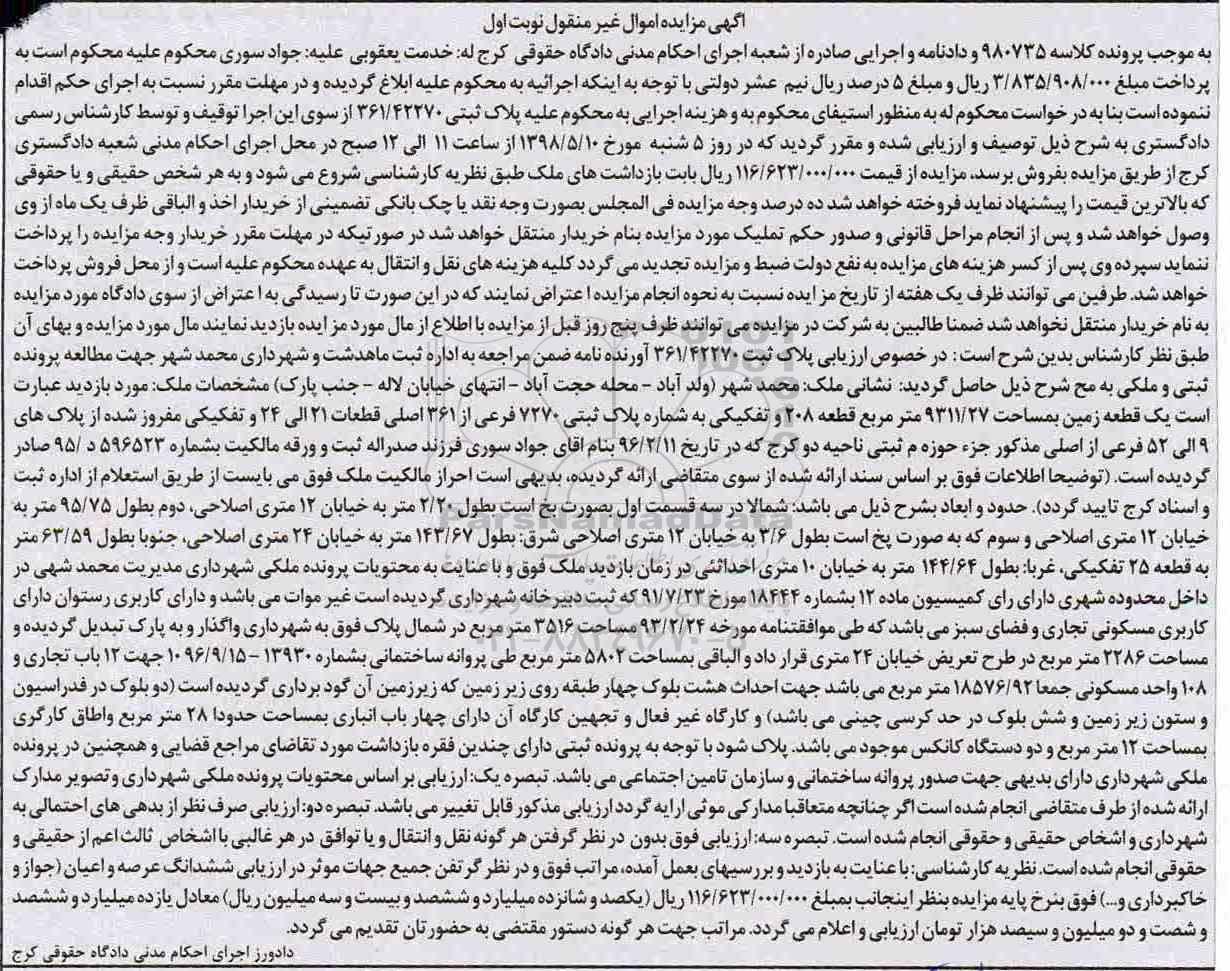 آگهی مزایده اموال غیر منقول نوبت اول
به موجب پرونده کلاسه ۹۸۰۷۳۵ و دادنامه و اجرایی صادره از شعبه اجرای احکام مدنی دادگاه حقوقی کرج له: خدمت یعقوبی علیه: جواد سوری محکوم علیه محکوم است به
پرداخت مبلغ ۳/۸۳۵/۹۰۸/۰۰۰ ریال و مبلغ ۵ درصد ریال نیم عشر دولتی با توجه به اینکه اجرائیه به محکوم علیه ابلاغ گردیده و در مهلت مقرر نسبت به اجرای حکم اقدام
ننموده است بنا به در خواست محکوم له به منظور استیفای محکوم به و هزینه اجرایی به محکوم علیه پلاک ثبتی ۳۶۱/۴۲۲۷۰ از سوی این اجرا توقیف و توسط کارشناس رسمی
دادگستری به شرح ذیل توصیف و ارزیابی شده و مقرر گردید که در روز ۵ شنبه مورخ ۱۳۹۸/۵/۱۰ از ساعت ۱۱ الی ۱۲ صبح در محل اجرای احکام مدنی شعبه دادگستری
کرج از طریق مزایده بفروش برسد، مزایده از قیمت ۱۱۶/۶۲۳/۰۰۰/۰۰۰ ریال بابت بازداشت های ملک طبق نظریه کارشناسی شروع می شود و به هر شخص حقیقی و یا حقوقی
که بالاترین قیمت را پیشنهاد نماید فروخته خواهد شد ده درصد وجه مزایده فی المجلس بصورت وجه نقد یا چک بانکی تضمینی از خریدار اخذ و الباقی ظرف یک ماه از وی
وصول خواهد شد و پس از انجام مراحل قانونی و صدور حکم تملیک مورد مزایده بنام خریدار منتقل خواهد شد در صورتیکه در مهلت مقرر خریدار وجه مزایده را پرداخت
ننماید سپرده وی پس از کسر هزینه های مزایده به نفع دولت ضبط و مزایده تجدید می گردد کلیه هزینه های نقل و انتقال به عهده محکوم علیه است و از محل فروش پرداخت
خواهد شد. طرفین می توانند ظرف یک هفته از تاریخ مز ایده نسبت به نحوه انجام مزایده ا عتراض نمایند که در این صورت تا رسیدگی به ا عتراض از سوی دادگاه مورد مزایده
به نام خریدار منتقل نخواهد شد ضمنا طالبین به شرکت در مزایده می توانند ظرف پنج روز قبل از مزایده با اطلاع از مال مورد مز ایده بازدید نمایند مال مورد مزایده و بهای آن
طبق نظر کارشناس بدین شرح است: در خصوص ارزیابی پلاک ثبت ۳۶۱/۴۲۲۷۰ آورنده نامه ضمن مراجعه به اداره ثبت ماهدشت و شهرداری محمد شهر جهت مطالعه پرونده
ثبتی و ملکی به مح شرح ذیل حاصل گردید: نشانی ملک: محمد شهر (ولد آباد - محله حجت آباد - انتهای خیابان لاله - جنب پارک) مشخصات ملک: مورد بازدید عبارت
است یک قطعه زمین بمساحت ۹۳۱۱/۲۷ متر مربع قطعه ۲۰۸ و تفکیکی به شماره پلاک ثبتی ۷۲۷۰ فرعی از ۳۶۱ اصلی قطعات ۲۱ الی ۲۴ و تفکیکی مفروز شده از پلاک های
۹ الی ۵۲ فرعی از اصلی مذکور جزء حوزه م ثبتی ناحیه دو کرج که در تاریخ ۹۶/۲/۱۱ بنام اقای جواد سوری فرزند صدراله ثبت و ورقه مالکیت بشماره ۵۹۶۵۲۳ د /۹۵ صادر
گردیده است. (توضیحا اطلاعات فوق بر اساس سند ارائه شده از سوی متقاضی ارائه گردیده، بدیهی است احراز مالکیت ملک فوق می بایست از طریق استعلام از اداره ثبت
و اسناد کرج تایید گردد). حدود و ابعاد بشرح ذیل می باشد: شمالا در سه قسمت اول بصورت پخ است بطول ۲/۲۰ متر به خیابان ۱۲ متری اصلاحی، دوم بطول ۹۵/۷۵ متر به
خیابان ۱۲ متری اصلاحی و سوم که به صورت پخ است بطول ۳/۶ به خیابان ۱۲ متری اصلاحی شرق: بطول ۱۴۳/۶۷ متر به خیابان ۲۴ متری اصلاحی، جنوبا بطول ۶۳/۵۹ متر
به قطعه ۲۵ تفکیکی، غربا: بطول ۱۴۴/۶۴ متر به خیابان ۱۰ متری احداثئی در زمان بازدید ملک فوق و با عنایت به محتویات پرونده ملکی شهرداری مدیریت محمد شهی در
داخل محدوده شهری دارای رای کمیسیون ماده ۱۲ بشماره ۱۸۴۴۴ مورخ ۹۱/۷/۲۳ که ثبت دبیرخانه شهرداری گردیده است غیر موات می باشد و دارای کاربری رستوان دارای
کاربری مسکونی تجاری و فضای سبز می باشد که طی موافقتنامه مورخه ۹۳/۲/۲۴ مساحت ۳۵۱۶ متر مربع در شمال پلاک فوق به شهرداری واگذار و به پارک تبدیل گردیده و
مساحت ۲۲۸۶ متر مربع در طرح تعریض خیابان ۲۴ متری قرار داد و الباقی بمساحت ۵۸۰۲ متر مربع طی پروانه ساختمانی بشماره ۱۳۹۳۰ - ۱۰۹۶/۹/۱۵ جهت ۱۲ باب تجاری و
۱۰۸ واحد مسکونی جمعا ۱۸۵۷۶/۹۲ متر مربع می باشد جهت احداث هشت بلوک چهار طبقه روی زیر زمین که زیرزمین آن گود برداری گردیده است (دو بلوک در فدراسیون
و ستون زیر زمین و شش بلوک در حد کرسی چینی می باشد) و کارگاه غیر فعال و تجهین کارگاه آن دارای چهار باب انباری بمساحت حدودا ۲۸ متر مربع واطاق کارگری
بمساحت ۱۲ متر مربع و دو دستگاه کانکس موجود می باشد. پلاک شود با توجه به پرونده ثبتی دارای چندین فقره بازداشت مورد تقاضای مراجع قضایی و همچنین در پرونده
ملکی شهرداری دارای بدیهی جهت صدور پروانه ساختمانی و سازمان تامین اجتماعی می باشد. تبصره یک: ارزیابی بر اساس محتویات پرونده ملکی شهرداری و تصویر مدارک
ارائه شده از طرف متقاضی انجام شده است اگر چنانچه متعاقبا مدارکی موثی ارایه گردد ارزیابی مذکور قابل تغییر می باشد. تبصره دو: ارزیابی صرف نظر از بدهی های احتمالی به
شهرداری و اشخاص حقیقی و حقوقی انجام شده است. تبصره سه: ارزیابی فوق بدون در نظر گرفتن هر گونه نقل و انتقال و یا توافق در هر غالبی با اشخاص ثالث اعم از حقیقی و
حقوقی انجام شده است. نظریه کارشناسی: با عنایت به بازدید و بررسیهای بعمل آمده، مراتب فوق و در نظر گرتفن جمیع جهات موثر در ارزیابی ششدانگ عرصه و اعیان (جواز و
خاکبرداری و...) فوق بنرخ پایه مزایده بنظر اینجانب بمبلغ ۱۱۶/۶۲۳/۰۰۰/۰۰۰ ریال (یکصد و شانزده میلیارد و ششصد و بیست و سه میلیون ریال) معادل یازده میلیارد و ششصد
و شصت و دو میلیون و سیصد هزار تومان ارزیابی و اعلام می گردد. مراتب جهت هر گونه دستور مقتضی به حضورتان تقدیم می گردد.
دادورز اجرای احکام مدنی دادگاه حقوقی کرج
ParsNamadData